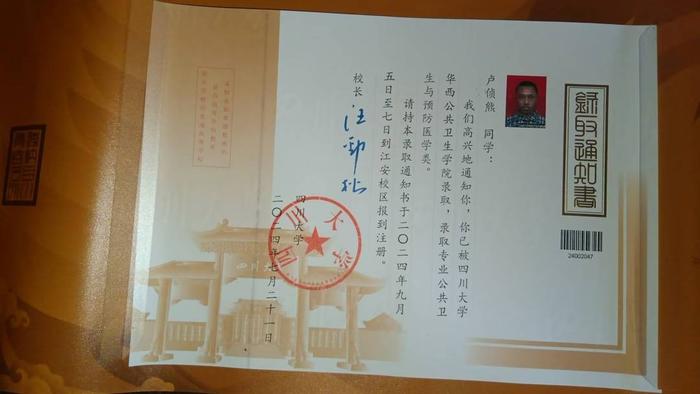 录取通知书
24002047
卢侦熊 同学：
我们高兴地通知你，你已被四川大学
华西公共卫生学院录取，录取专业公共卫
生与预防医学类。
请持本录取通知书于二〇二四年九月
五日至七日到江安校区报到注册。
校长 汪劲松
四川大学
二〇二四年七月二十一日
四川大学